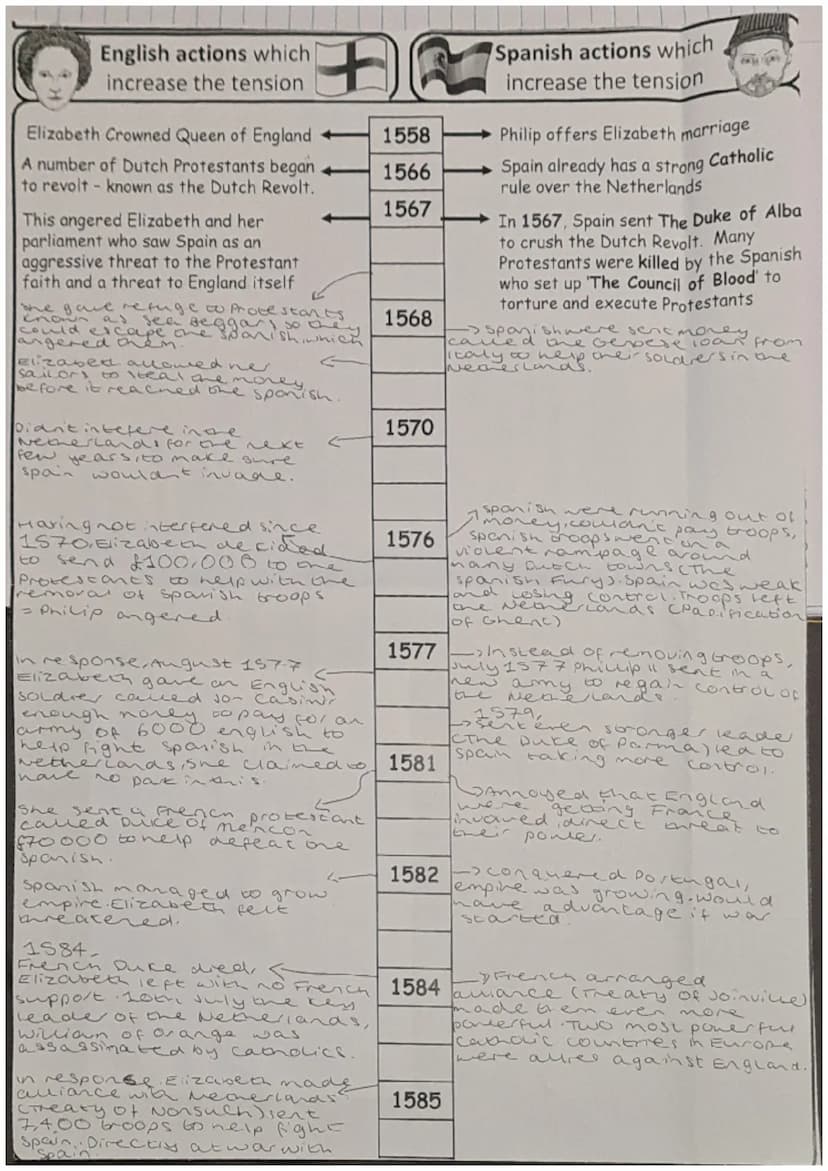 English actions which
increase the tension
Spanish actions which
increase the tension
Elizabeth Crowned Queen of England
1558
Philip offers Elizabeth marriage
A number of Dutch Protestants began
to revolt – known as the Dutch Revolt.
1566
Spain already has a strong Catholic
rule over the Netherlands
1567
This angered Elizabeth and her
parliament who saw Spain as an
aggressive threat to the Protestant
faith and a threat to England itself
In 1567, Spain sent The Duke of Alba
to crush the Dutch Revolt. Many
Protestants were killed by the Spanish
who set up 'The Council of Blood' to
torture and execute Protestants
She gave refuge to Protestants
known as Sea Beggars so they
could escape the Spanish, which
angered them.
1568
Spanish were sent money
called the Genoese loan from
Italy to help their soldiers in the
Netherlands.
Elizabeth allowed her
sailors to steal the money
before it reached the Spanish.
1570
Didn't intefere in the
Netherlands for the next
few years, to make sure
Spain wouldn't invade.
Having not interfered since
1570, Elizabeth decided
to send £100,000 to the
Protestants to help with the
removal of Spanish troops
= Philip angered
1576
Spanish were running out of
money, couldn't pay troops,
Spanish troops went on a
violent rampage around
many Dutch towns (The
Spanish Fury). Spain was weak
and losing control. Troops left
the Netherlands (Pacification
of Ghent)
1577
In response, August 1577
Elizabeth gave an English
soldier called Jon Casimir
enough money to pay for an
army of 6000 english to
help fight Spanish in the
Netherlands, she claimed to
have no part in this.
Instead of removing troops,
July 1577 Phillip II sent in a
new army to regain control of
the Netherlands.
1579,
sent even stronger leader
(The Duke of Parma) led to
Spain taking more control.
1581
She sent a French protestant
called Duke of
£70000 to help defeat the
Spanish.
Annoyed that England
were getting France
involved, direct threat to
their power.
1582
Spanish managed to grow
empire. Elizabeth felt
threatened.
conquered Portugal,
empire was growing. would
have advantage if war
started.
1584,
French Duke died,
Elizabeth left with no French
support. 10th July the key
leader of the Netherlands,
William of Orange was
assassinated by Catholics.
1584
French arranged
alliance (Treaty of Joinville)
made them even more
powerful. Two most powerful
Catholic countries in Europe
were allies against England.
1585
In response, Elizabeth made
alliance with Netherlands
(Treaty of Nonsuch) sent
7,400 troops to help fight
Spain. Directly at war with
Spain.